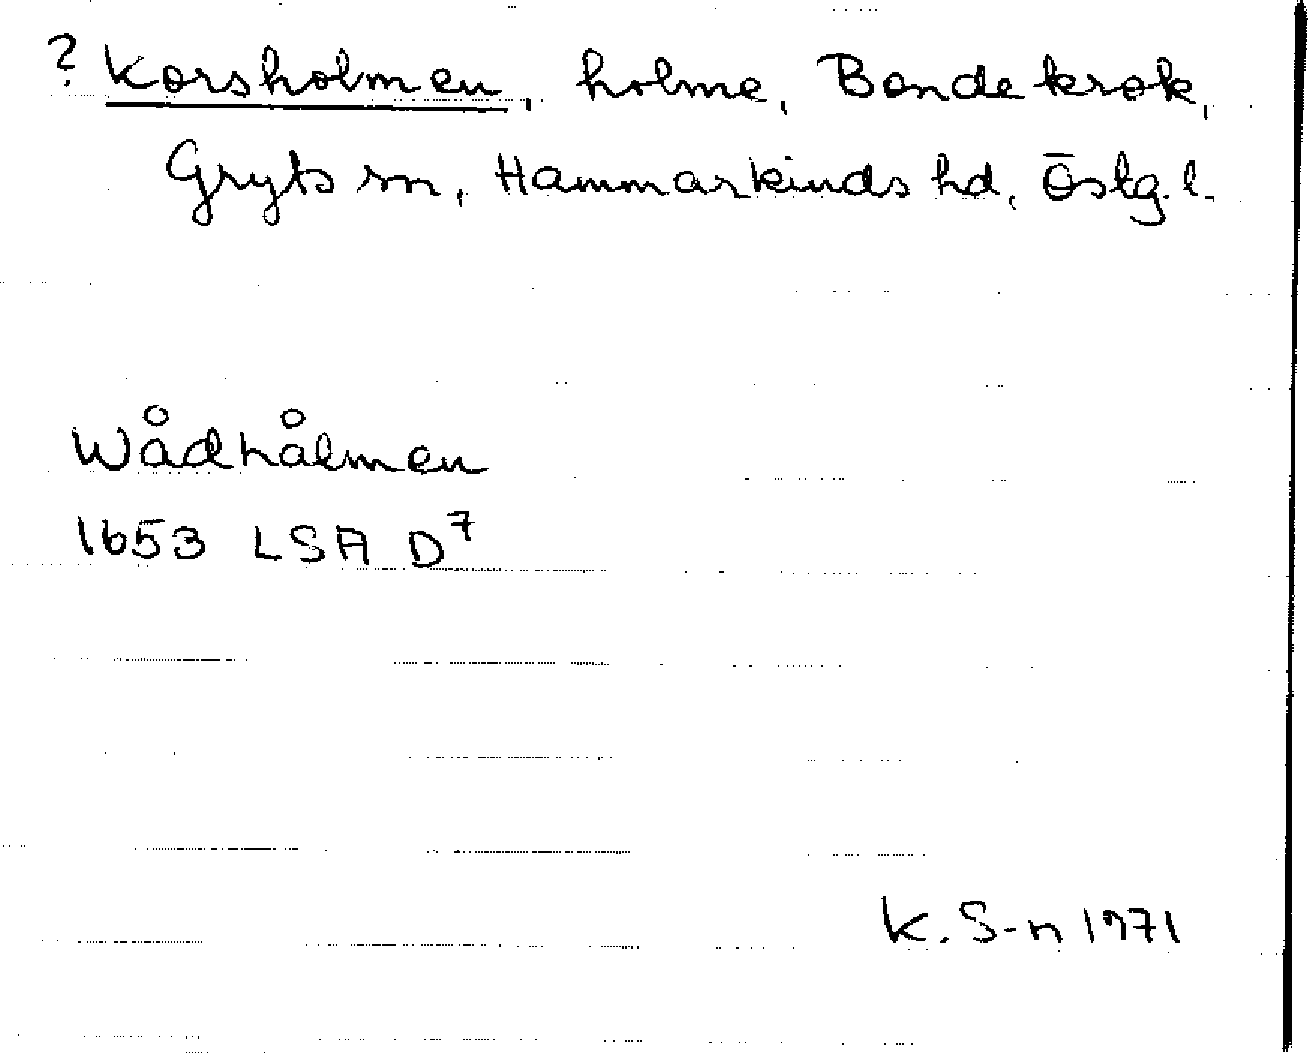 ? Korsholmen, holme, Bondekrok,
Gryts sn, Hammarkinds hd, Östg.l.
Wådhålmen
1653 LSA D7
K. S-n 1971